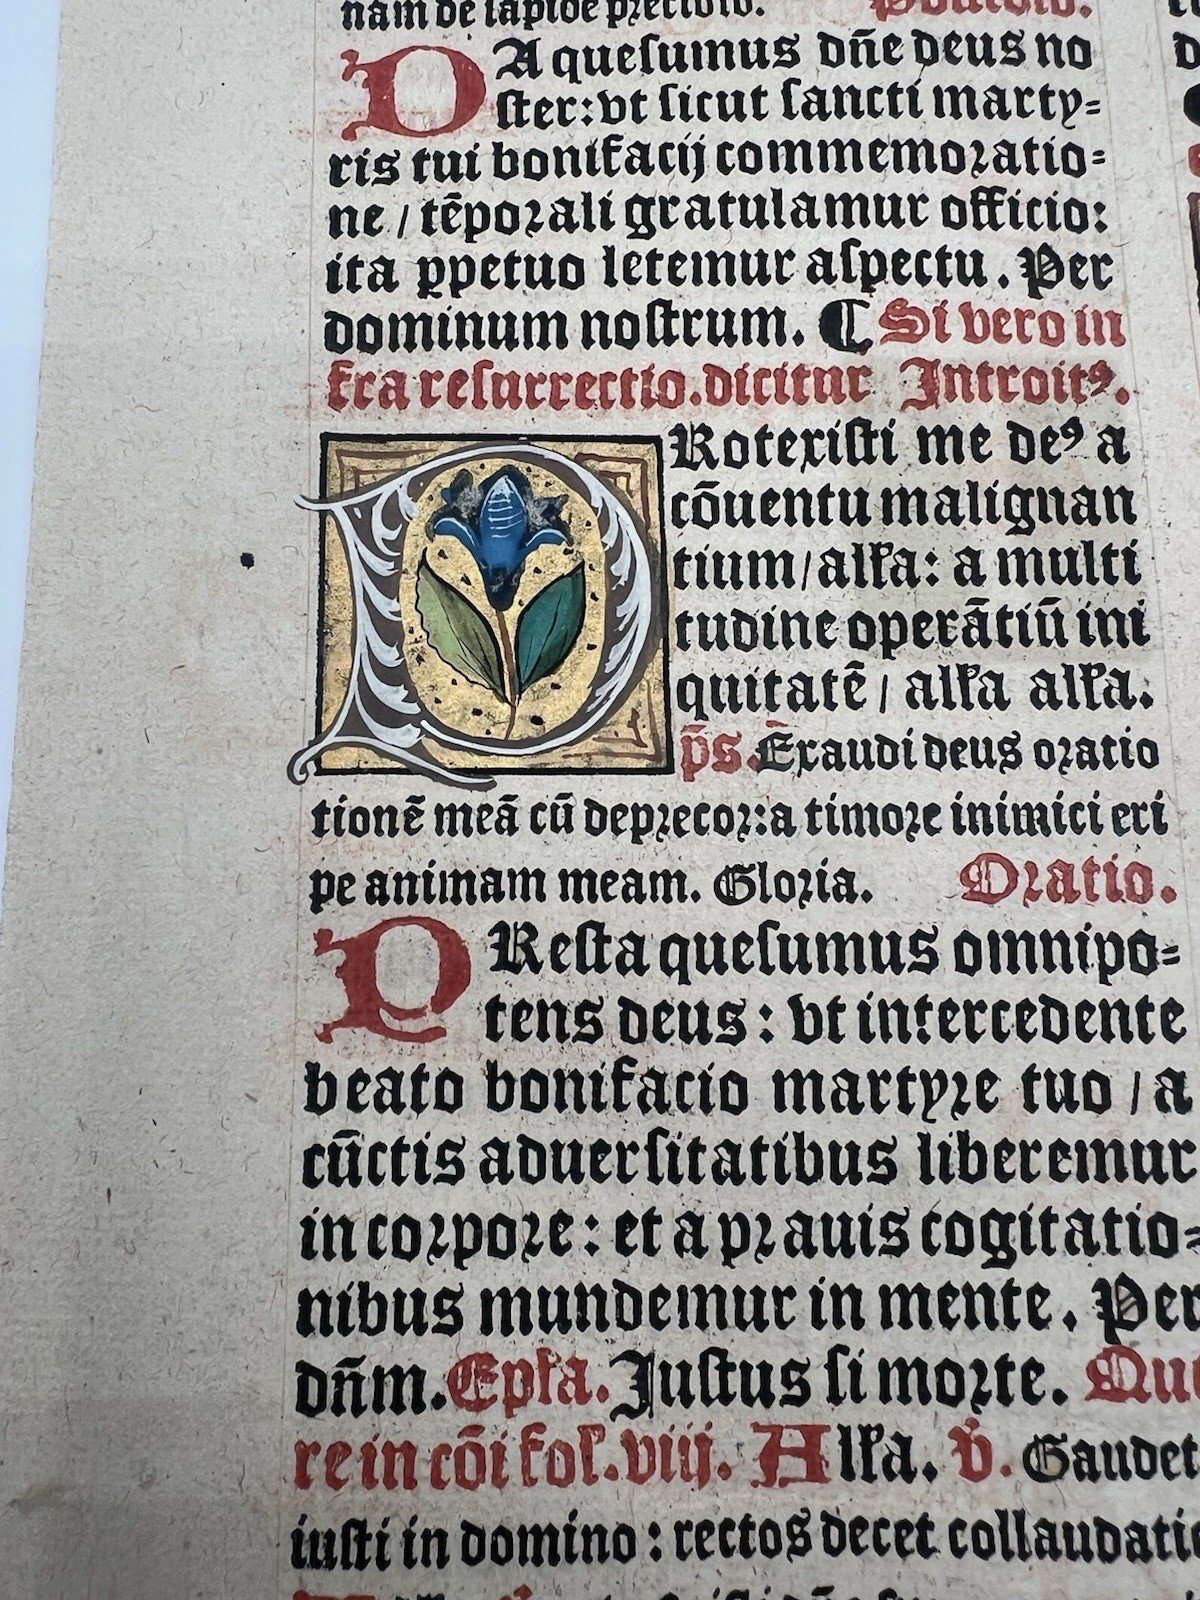 nam de lapide precioso.
DA quesumus dñe deus no
ster: vt sicut sancti marty=
ris tui bonifacij commemoratio=
ne / tēporali gratulamur officio:
ita ꝑpetuo letemur aspectu. Per
dominum nostrum. ¶ Si vero in
fra resurrectio. dicitur Introitꝰ.
PRotexisti me deꝰ a
cōuentu malignan
tium / alľa: a multi
tudine operātiū ini
quitatē / alľa alľa.
p̄s. Exaudi deus oratio
tionē meā cū deprecor: a timore inimici eri
pe animam meam. Gloria. Oratio.
PResta quesumus omnipo=
tens deus: vt intercedente
beato bonifacio martyre tuo / a
cūctis aduersitatibus liberemur
in corpore: et a prauis cogitatio=
nibus mundemur in mente. Per
dñm. Epľa. Justus si morte. Que
re in cōi fol. viij. Alľa. ℣. Gaudet
iusti in domino: rectos decet collaudati